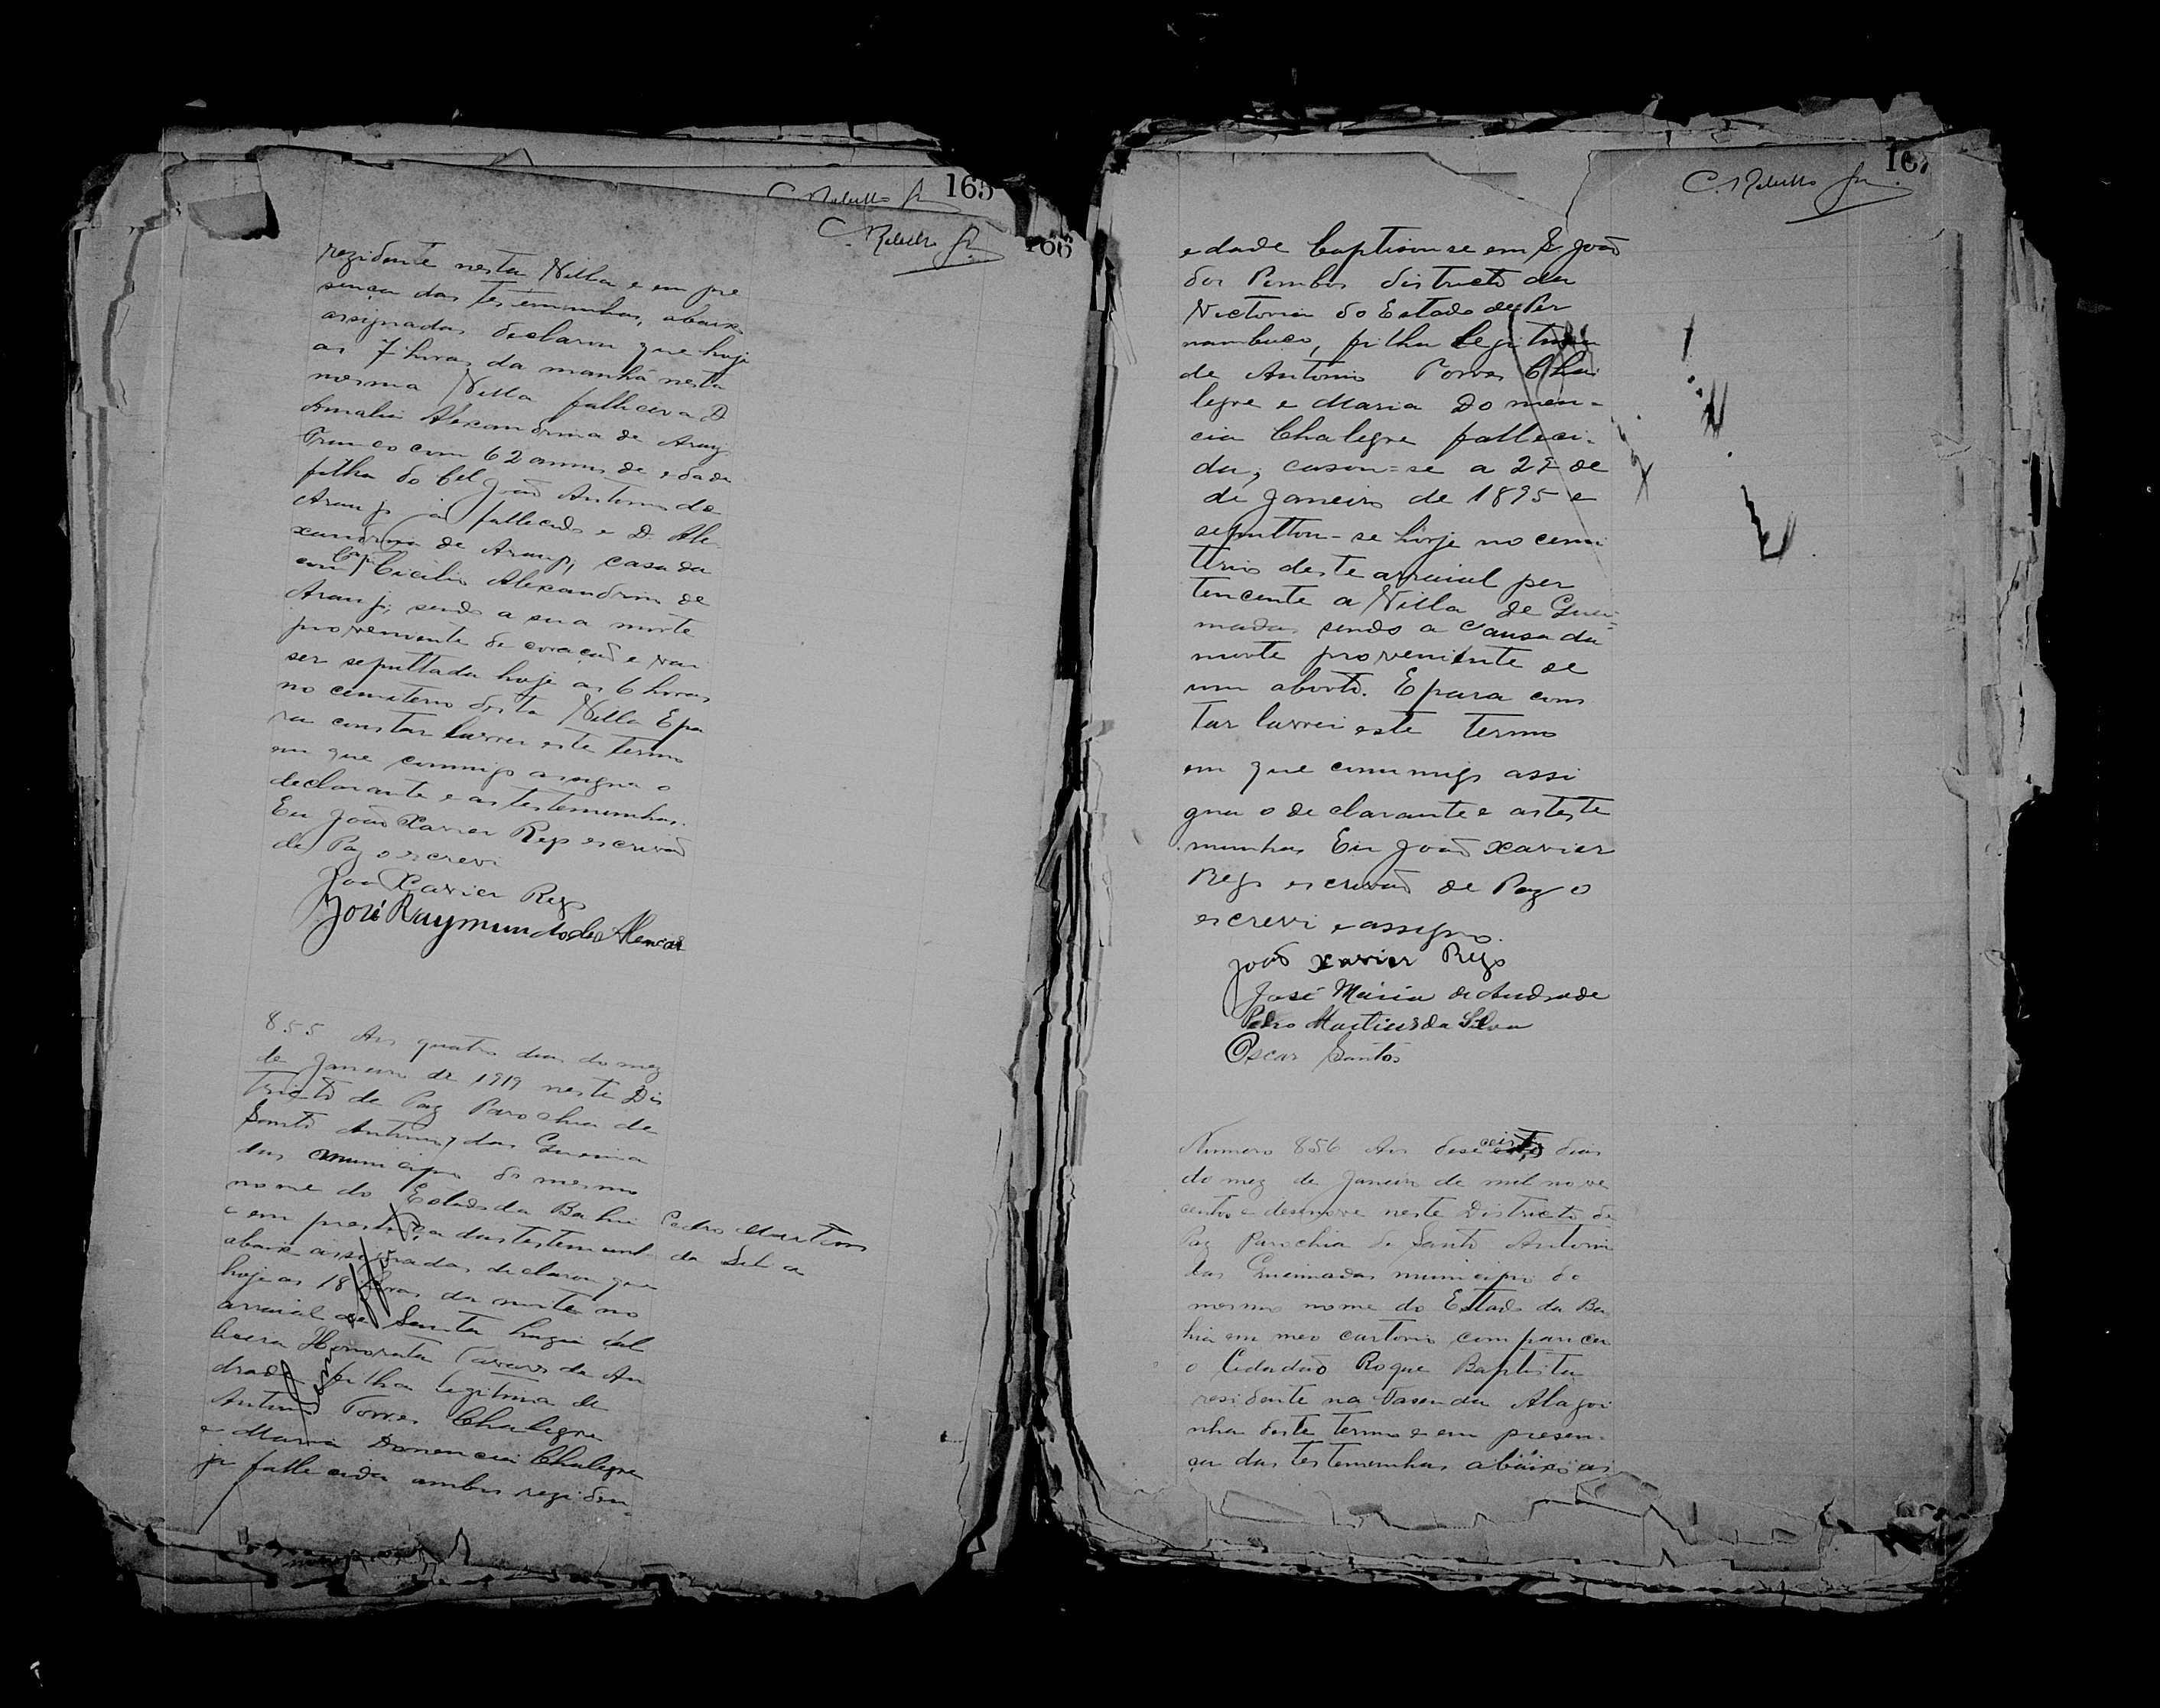 165
C. Rebello Jr.
166
C. Rebello Jr.
rezidente nesta Villa e em pre
sença das testemunhas, abaixo
assignadas declarou que hoje
as 7 horas da manhã nesta
mesma Villa falleceu D
Amalia Alexandrina de Arauj
com 62 annos de edade
filha do Cel João Antonio de
Araujo já fallecido e D. Ale
xandrina de Araujo, casada
com Capm Cicilio Alexandrino de
Araujo, sendo a sua morte
proveniente de coração e vai
ser sepultada hoje as 6 horas
no cemiterio desta Villa E pa
ra constar lavrei este termo
em que commigo assigna o
declarante e as testemunhas.
Eu João Xavier Rego escrivão
de Paz o escrevi
João Xavier Rego
José Raymundo de Alencar
855 Aos quatro dias do mez
de Janeiro de 1919 neste Dis
tricto de Paz Parochia de
Santo Antonio das Queima
das municipio do mesmo
nome do Estado da Bahia
Pedro Martins
e em presença das testemunh
da Silva
abaixo assignadas declarou que
hoje as 18 horas da noite no
arraial de Santa Luzia fal
lecera Honorata Tavares de An
drade filha legitima de
Antonio Torres Chalegre
e Maria Domencia Chalegre
ja fallecida ambos reziden
167
C. Rebello Jr.
edade baptisouse em S. João
dos Pombos districto da
Victoria do Estado de Per
nambuco, filha legitima
de Antonio Torres Cha
legre e Maria Domen-
cia Chalegre falleci-
da, casou-se a 29 de
de Janeiro de 1895 e
sepultou-se hoje no cemi
terio deste arraial per
tencente a Villa de Quei-
madas, sendo a causa da
morte proveniente de
um aborto. E para cons
tar lavrei este termo
em que commigo assi
gna o declarante e as teste
munhas Eu João Xavier
Rego escrivão de Paz o
escrevi e assigno.
João Xavier Rego
José Maria de Andrade
Pedro Martins da Silva
Oscar Santos
Numero 856 Aos deseceis dias
do mez de Janeiro de mil nove
centos e desenove neste Districto de
Paz Parochia de Santo Antonio
das Queimadas municipio do
mesmo nome do Estado da Ba
hia em meo cartorio compareceu
o Cidadão Roque Baptista
residente na Fasenda Alagoi
nha deste termo e em presen-
ça das testemunhas abaixo as